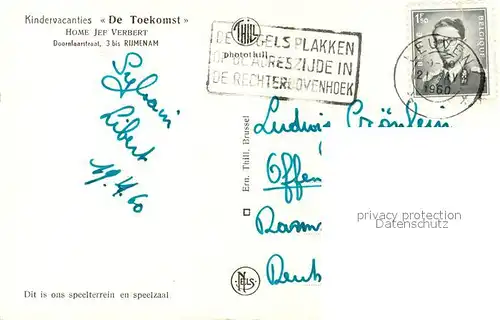 Kindervacanties « De Toekomst »
HOME JEF VERBERT
Doornlaarstraat, 3 bis RIJMENAM
THILL
photothill
DE ZEGELS PLAKKEN
OP DE ADRESZIJDE IN
DE RECHTERBOVENHOEK
1F50
BELGIQUE
LEUVEN
1960
Sylvain
Libert
19.4.60
Ern. Thill, Brussel
Ludwig
Offen
Deut
privacy protection
oldthing.com
NELS
Dit is ons speelterrein en speelzaal